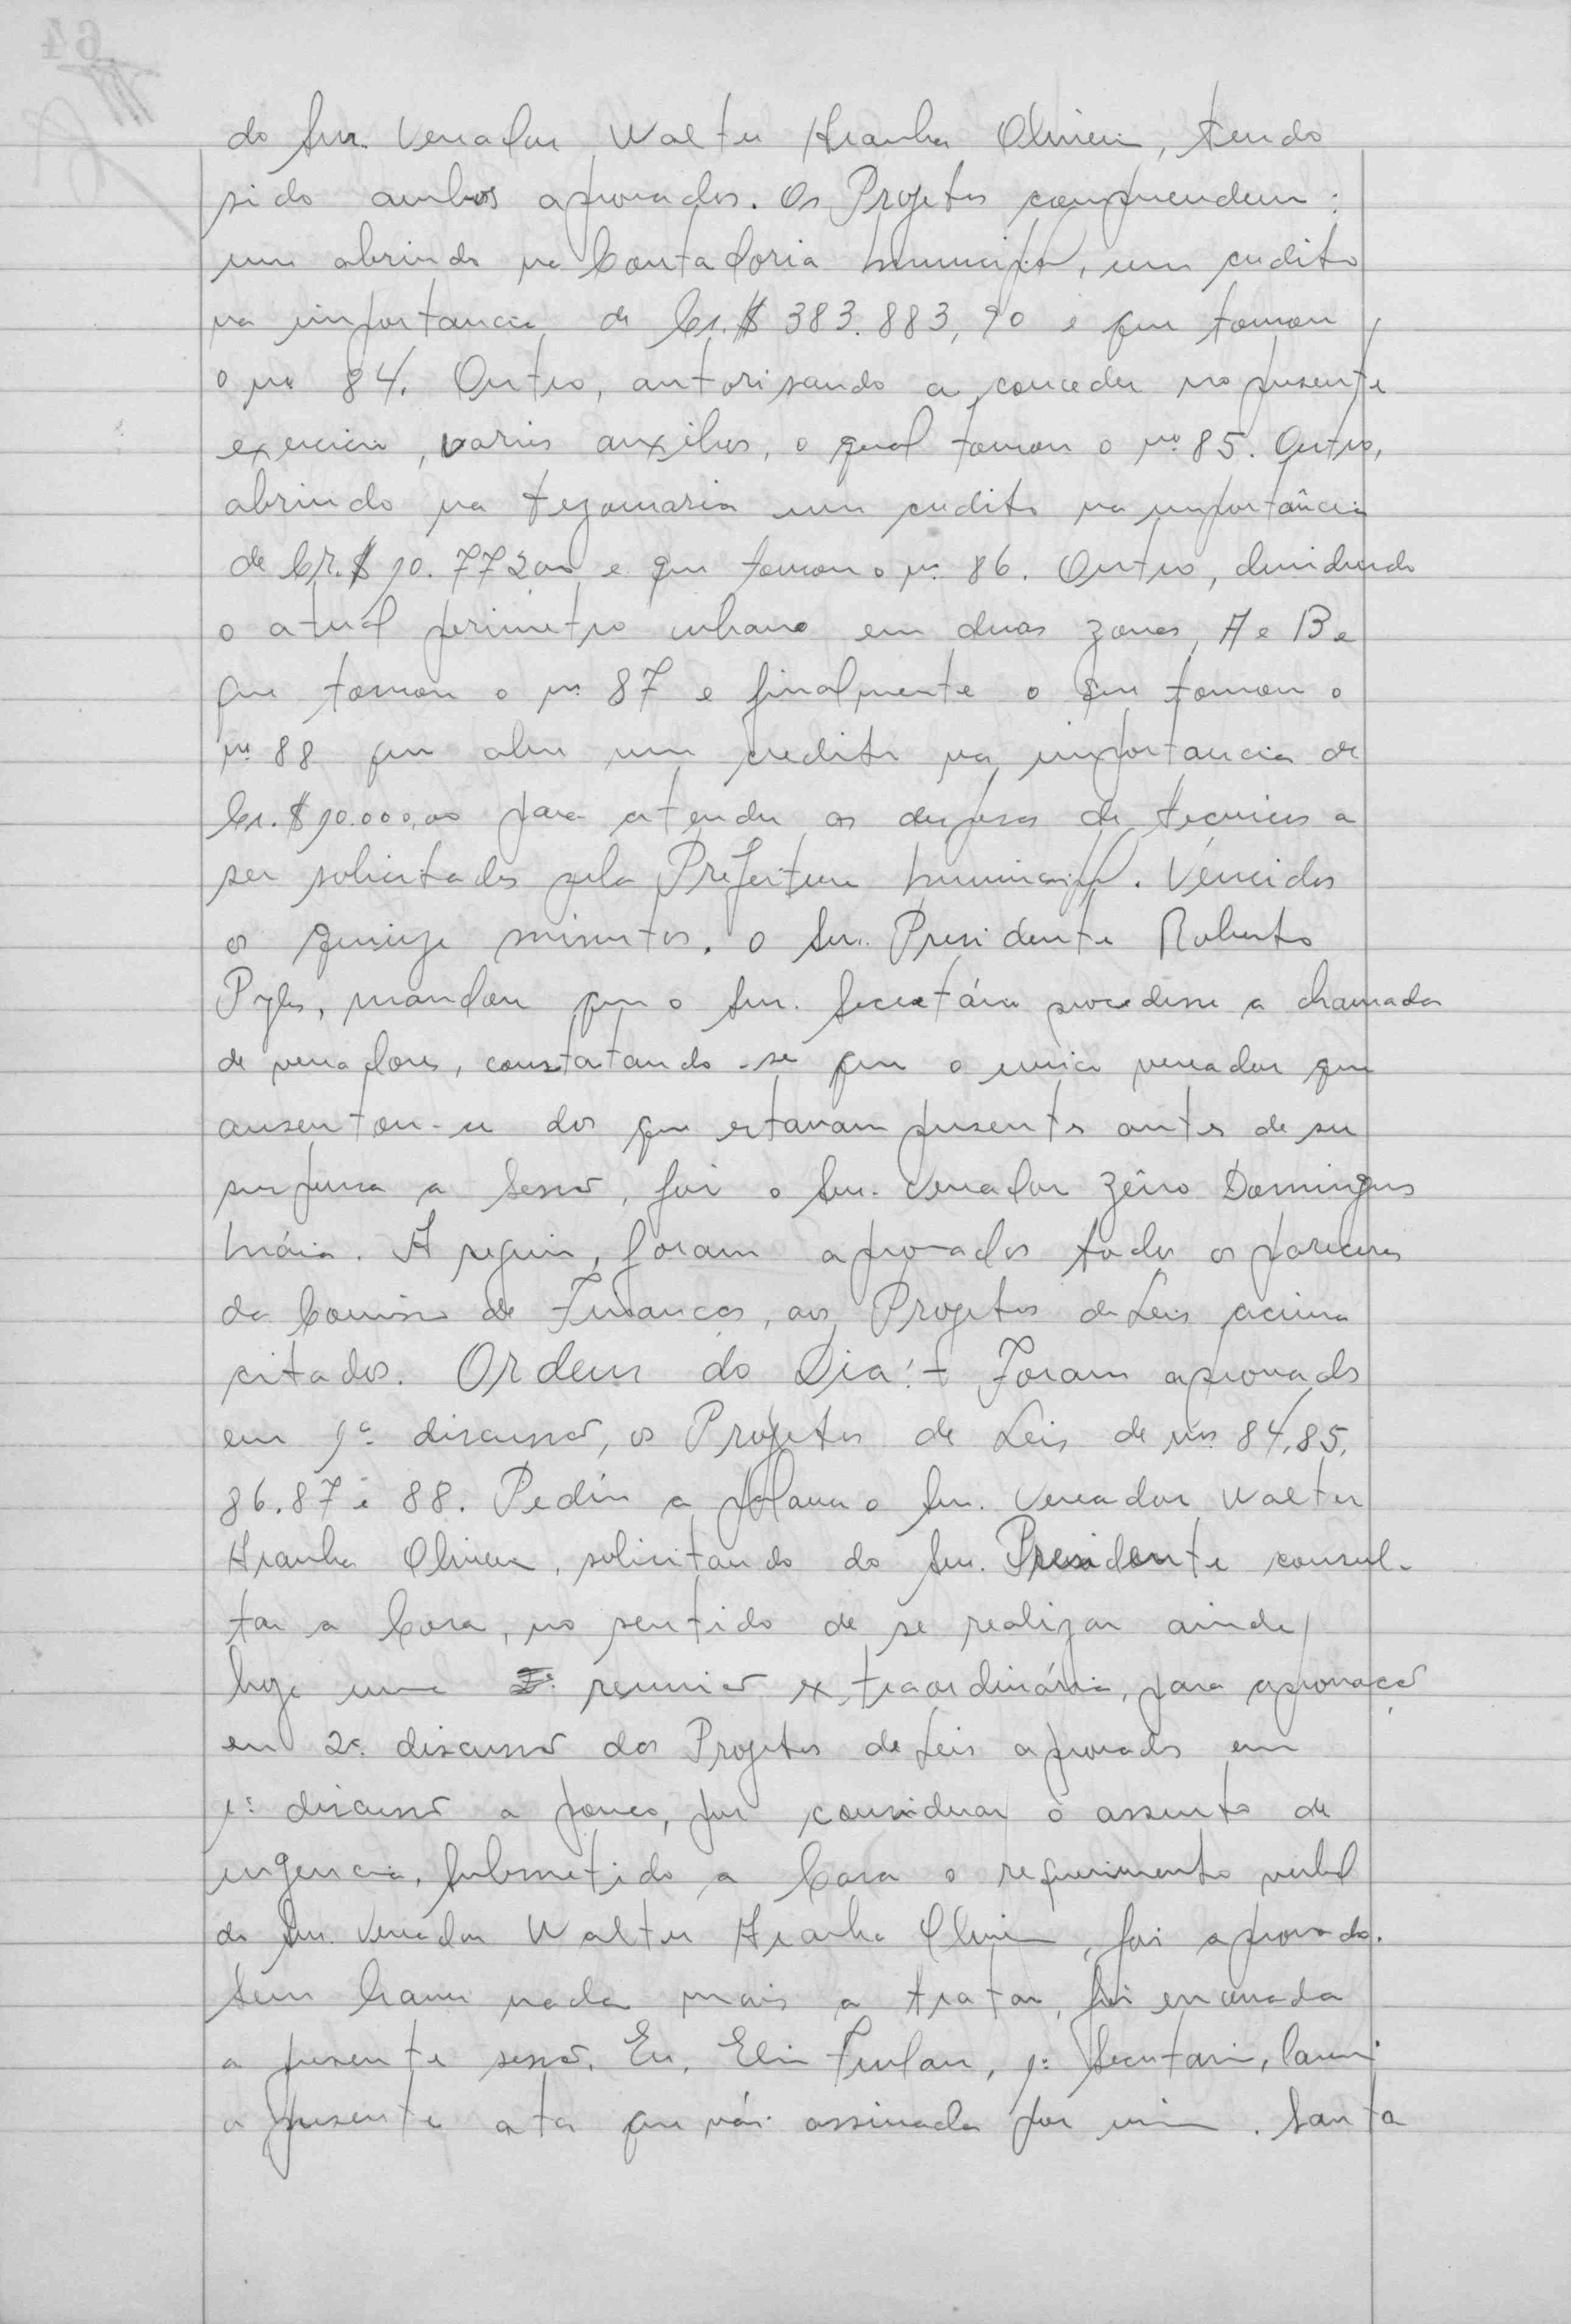 do Snr. Vereador Walter Aranha Oliveira, tendo
sido ambos aprovados. Os Projetos compreendem:
um abrindo na Contadoria Municipal, um credito
na importancia de Cr.$ 383.883,90 e que tomou
o nº 84. Outro, autorisando a conceder no presente
exercicio, varios auxilios, o qual tomou o nº 85. Outro,
abrindo na tezouraria um credito na importância
de Cr.$ 10.772,00 e que tomou o nº 86. Outro, dividindo
o atual perimetro urbano em duas zonas, A e B e
que tomou o nº 87 e finalmente o que tomou o
nº 88 que abre um credito na importancia de
Cr.$ 10.000,00 para atender as despesas de tecnicos a
ser solicitados pela Prefeitura Municipal. Vencidos
os quinze minutos, o Snr. Presidente Roberto
Pyles, mandou que o Snr. Secretário procedesse a chamada
de vereadores, constatando-se que o unico vereador que
ausentou-se dos que estavam presentes antes de ser
suspensa a sessão, foi o Snr. Vereador Zêno Domingues
Máia. A seguir, foram aprovados todos os pareceres
da Comissão de Finanças, aos Projetos de Leis acima
citados. Ordem do Dia:- Foram aprovados
em 1ª discussão, os Projetos de Leis de nºs 84,85,
86.87 e 88. Pediu a palavra o Snr. Vereador Walter
Aranha Oliveira, solicitando do Snr. Presidente consul-
tar a Casa, no sentido de se realizar ainda
hoje uma 2ª reunião extraordinária, para aprovação
em 2ª discussão dos Projetos de Leis aprovados em
1ª discussão a pouco, por considerar o assunto de
urgencia. Submetido a Casa o requerimento verbal
do Snr. Vereador Walter Aranha Oliveira, foi aprovado.
Sem haver nada mais a tratar, foi encerrada
a presente sessão. Eu, Elio Furlan, 1º Secretario, lavrei
a presente ata que vái assinada por mim. Santa